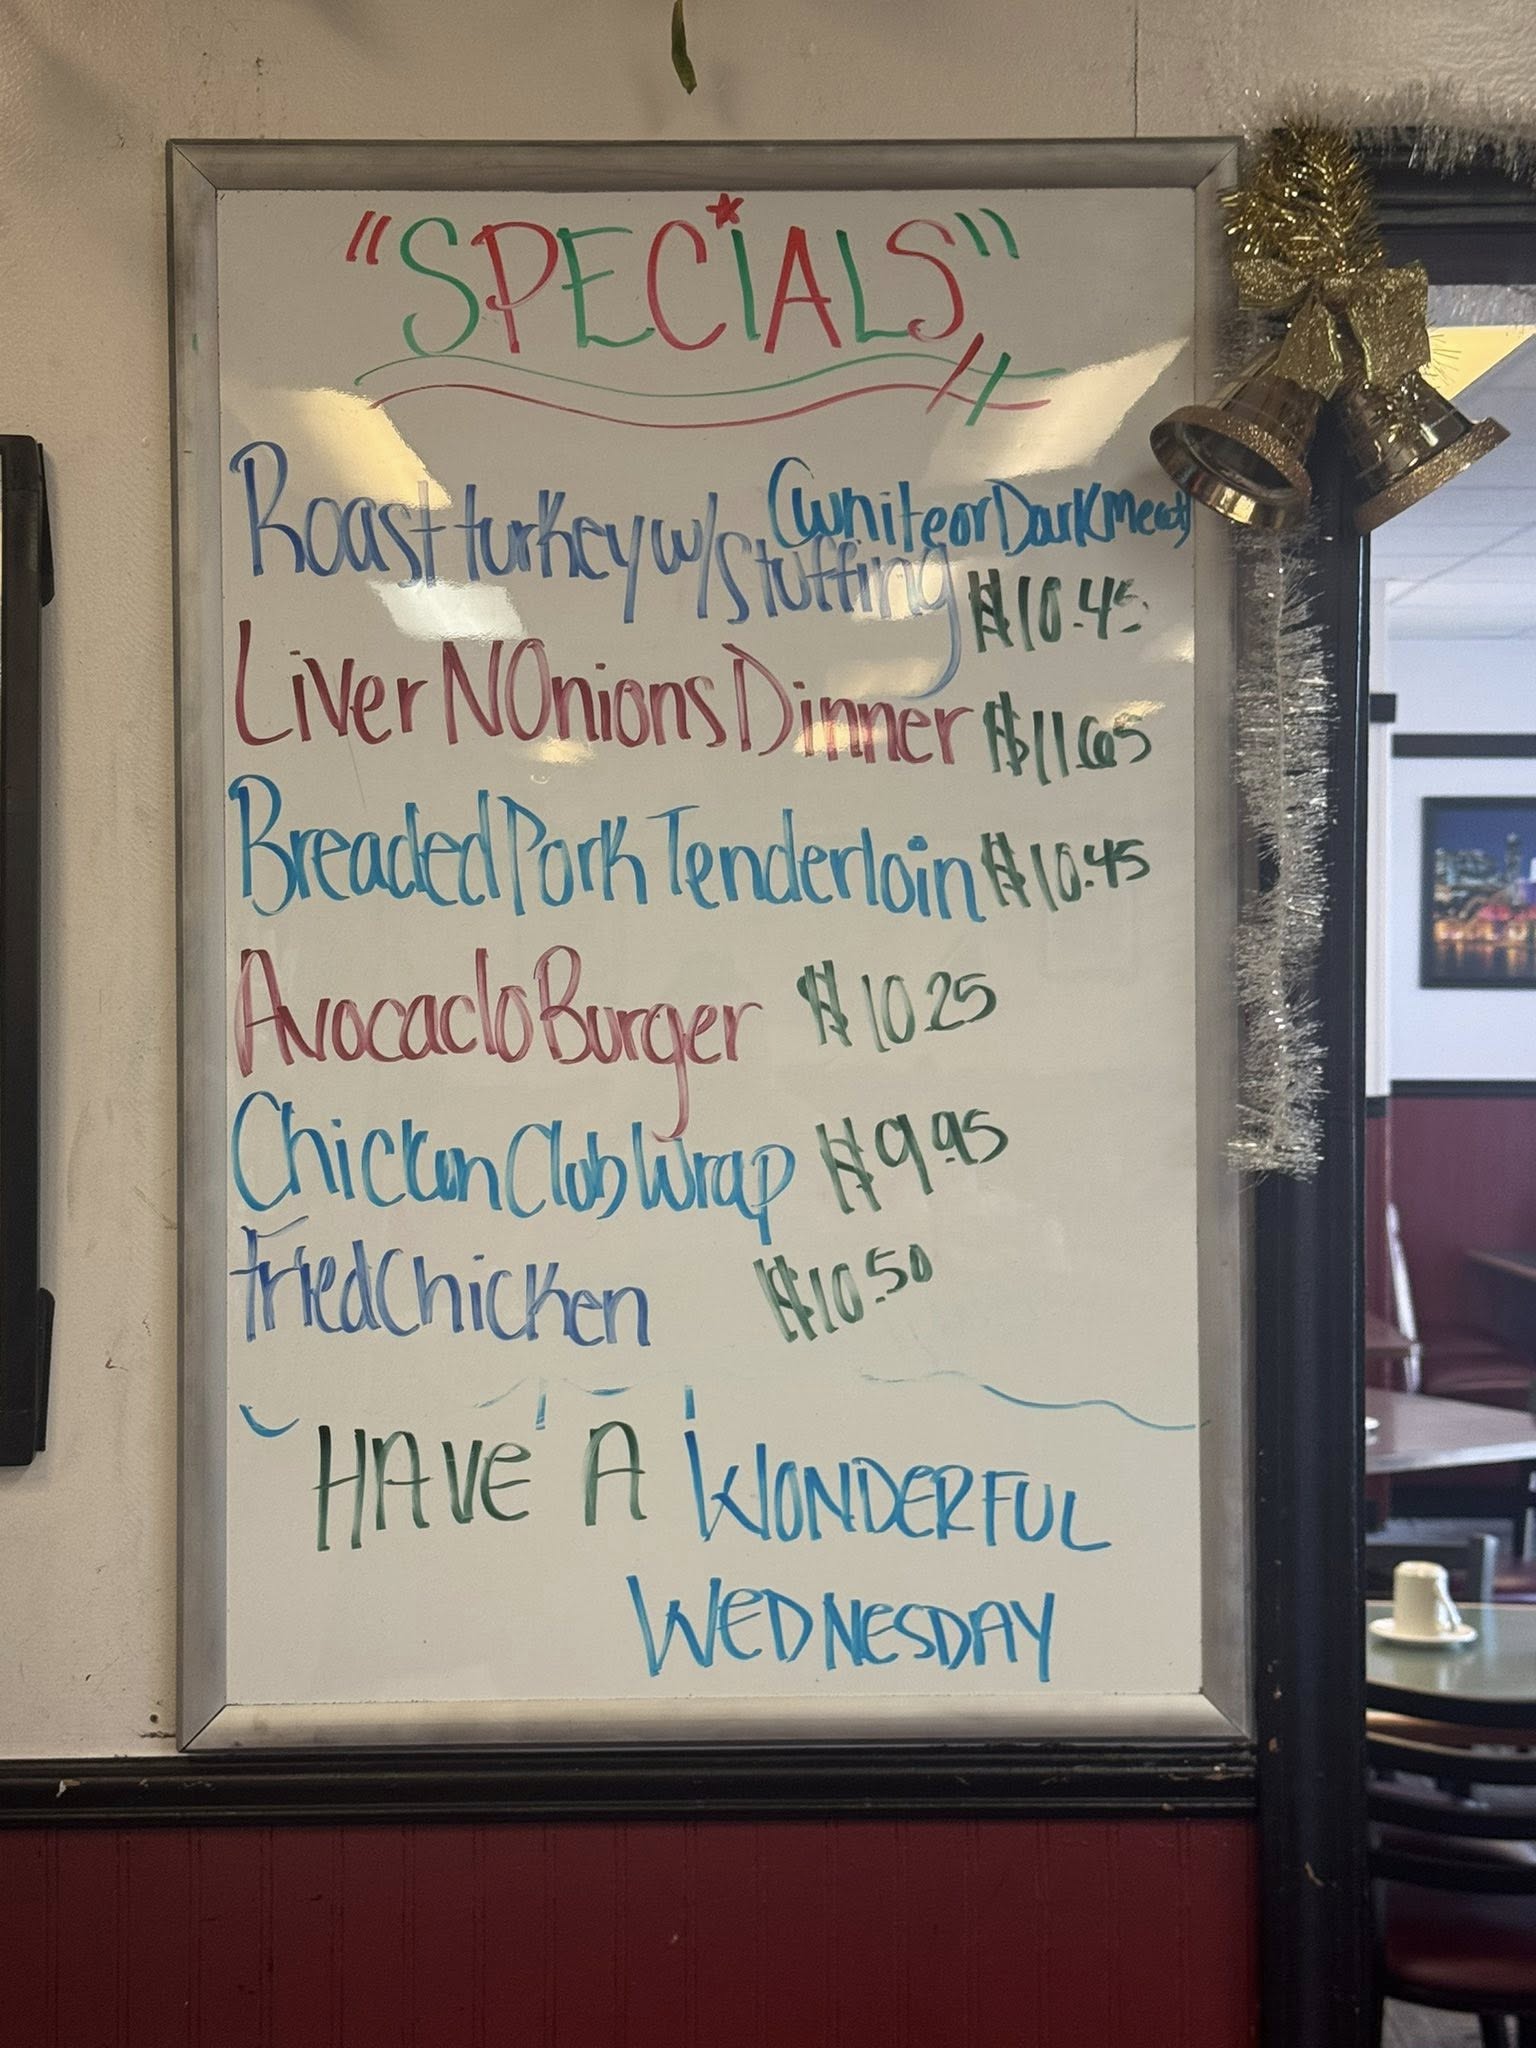 "SPECiALS"
Roast turkey w/ Stuffing (white or Dark meat) $10.45
Liver N Onions Dinner $11.65
Breaded Pork Tenderloin $10.45
Avocado Burger $10.25
Chicken Club Wrap $9.95
Fried Chicken $10.50
HAVE A WONDERFUL
WEDNESDAY